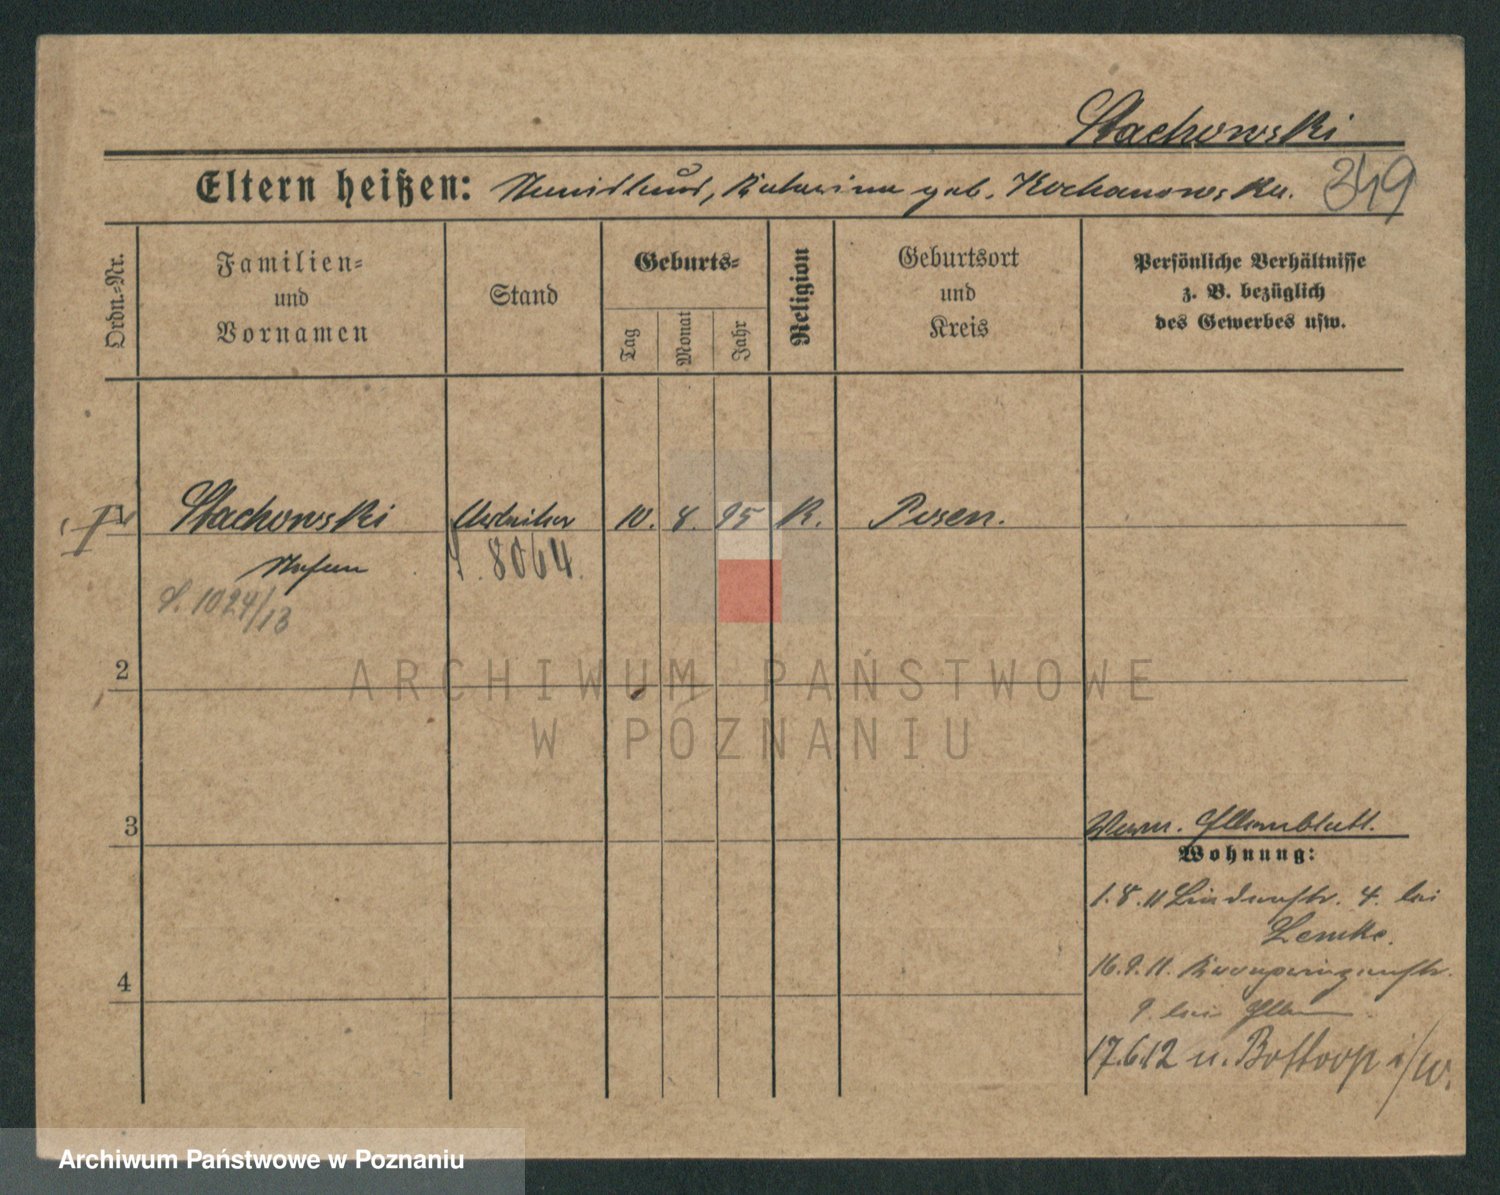 Stachowski
Eltern heißen: Katarina geb. Kochanowska.
349
Ordn.-Nr.
Familien-
und
Vornamen
Stand
Geburts-
Tag
Monat
Jahr
Religion
Geburtsort
und
Kreis
Persönliche Verhältnisse
z. B. bezüglich
des Gewerbes usw.
1 Stachowski Arbeiter 10. 4. 95 K. Posen.
Stefan
S. 8064.
S. 1024/13
2
3
4
Verm. Elternblatt.
Wohnung:
1.8.11 Lindenstr. 4. bei
Lemke.
16.9.11. Kronprinzenstr.
9. bei Eltern
17.6.12 n. Bottrop i/W.
ARCHIWUM PAŃSTWOWE
W POZNANIU
Archiwum Państwowe w Poznaniu